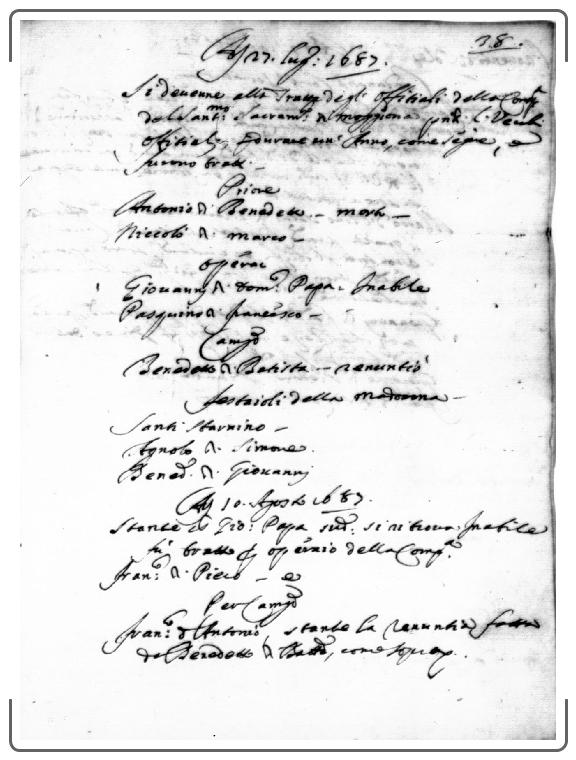 38.
Adj 27. lug.o 1687.
Si devenne alla Tratta degli Offitiali della Comp.a
del Sant.mo Sacram.to di Moggiona per li Vecchi
offitiali, e durare un' Anno, come segue, e
furono tratti -
Priore
Antonio di Benedetto - morto -
Niccolò di Marco -
Operai
Giovannj di Dom.o Papa - Inabile
Pasquino di Francesco -
Camg.o
Benedetto di Batista - renuntiò
Festaioli della Madonna -
Santi Starnino -
Agnolo di Simone.
Bened.o di Giovannj
Adj 10. Agosto 1687.
Stante che Gio: Papa sud.o si ritrova Inabile
fù tratto p operaio della Comp.a
Fran.o di Piero - e
Per Camg.o
Fran.o d'Antonio, stante la renuntia fatta
da Benedetto di Batt.a, come sopra.